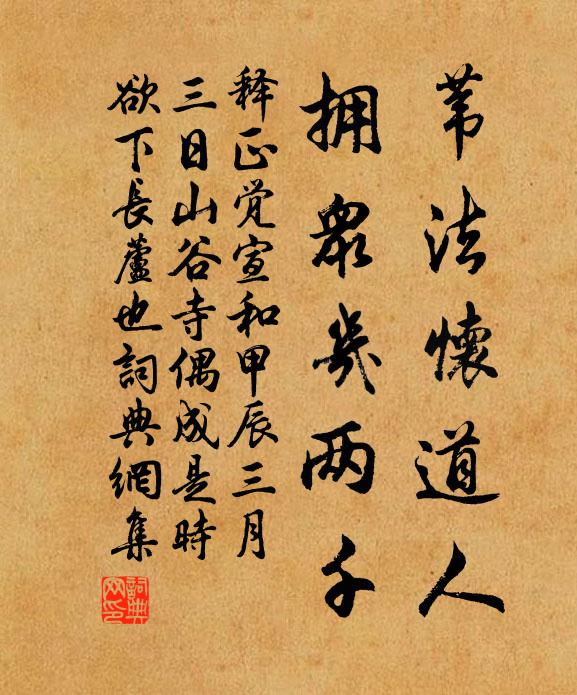 苇法懷道人
拥眾幾两千
释正觉宣和甲辰三月
三日山谷寺偶成是時
欲下長蘆也詞典網集
詞典
网印